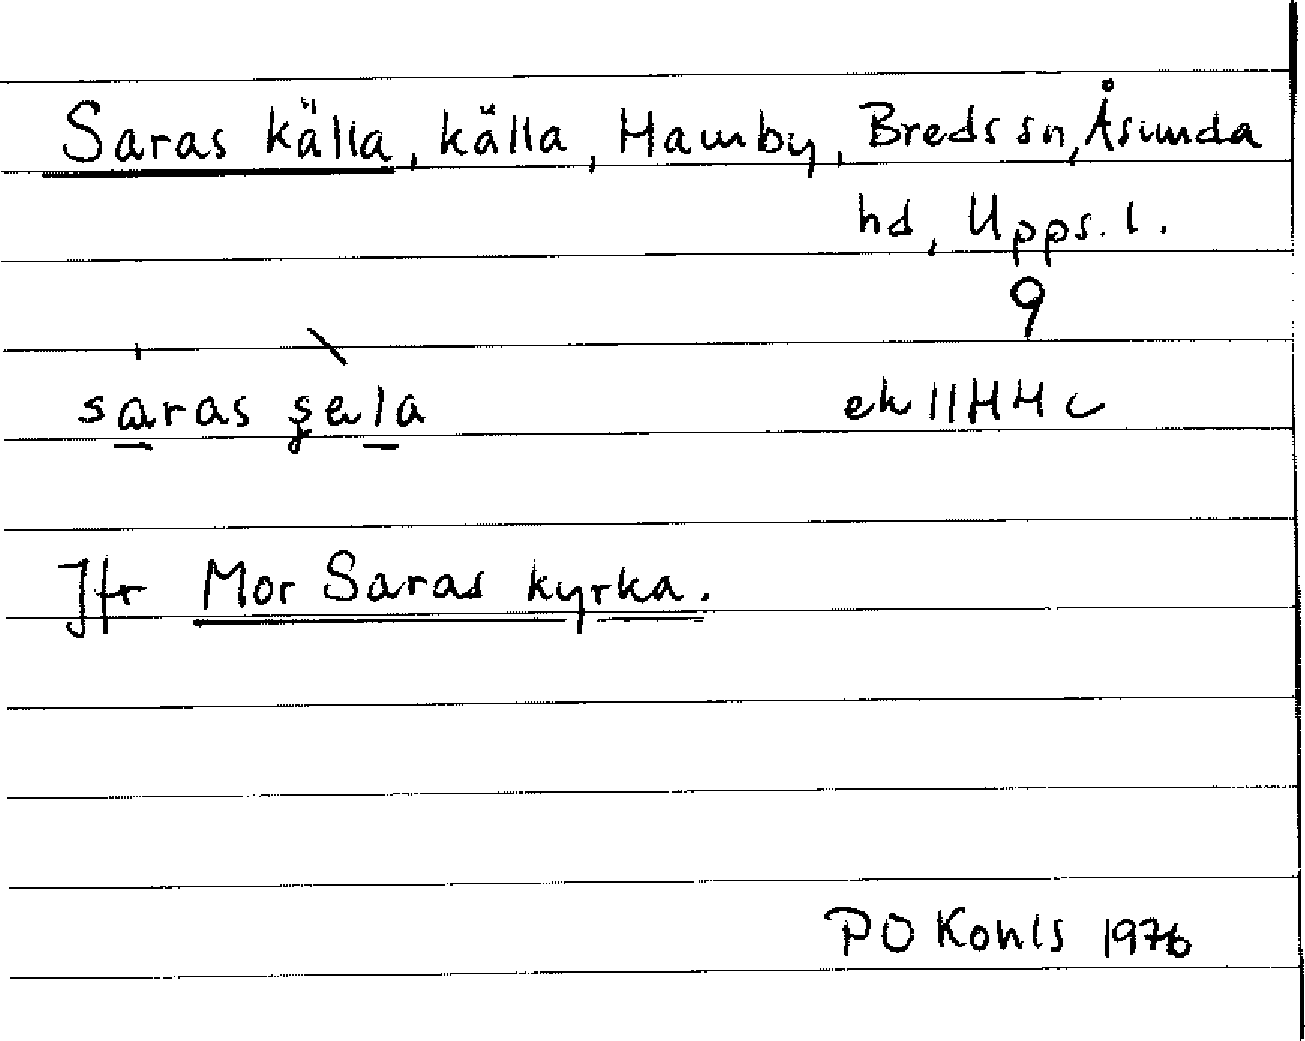 Saras källa, källa, Hamby, Breds sn, Åsunda
hd, Upps. l.
9
saras şela
ek 11H4c
Jfr Mor Saras kyrka.
PO Kohls 1976